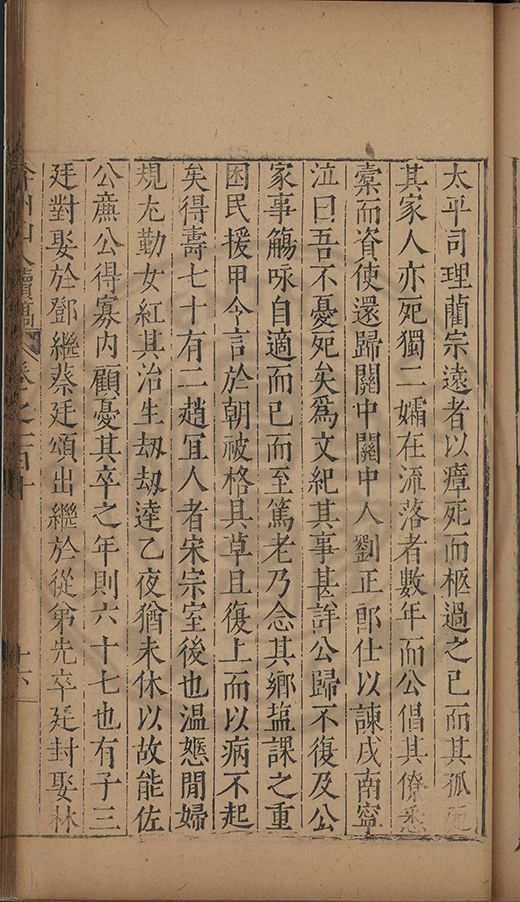 太平司理藺宗遠者以瘴死而柩過之已而其孤
其家人亦死獨二孀在流落者數年而公倡其僚悉
橐而資使還歸關中關中人劉正郎仕以諫戍南寧
泣曰吾不憂死矣爲文紀其事甚詳公歸不復及公
家事觴咏自適而已而至篤老乃念其鄉塩課之重
困民援甲令言於朝被格具草且復上而以病不起
矣得壽七十有二趙宜人者宋宗室後也温慤閒婦
規尢勤女紅其治生刼刼達乙夜猶未休以故能佐
公廉公得寡内顧憂其卒之年則六十七也有子三
廷對娶於鄧繼蔡廷頌出繼於從第先卒廷封娶林
續稿 卷之一百十 十六